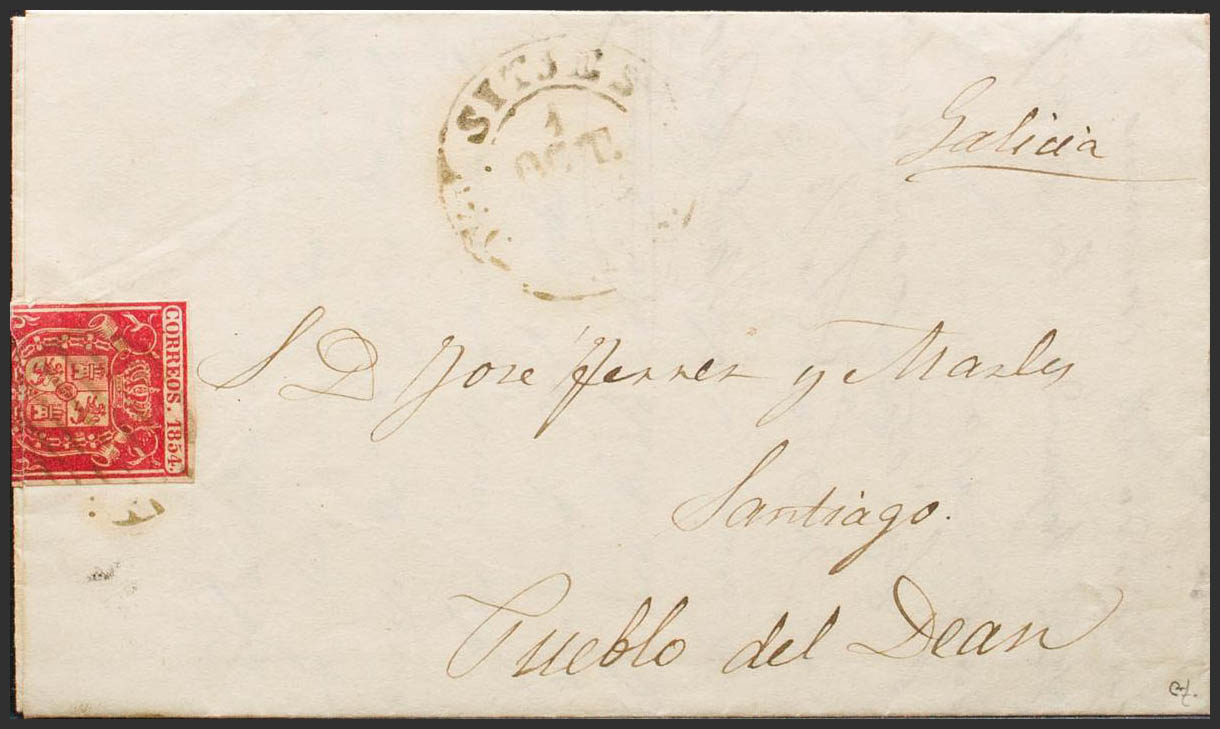 SITJES
1
OCT.
Galicia
CORREOS. 1854.
S D José Ferrer y Marles
Santiago.
Pueblo del Dean